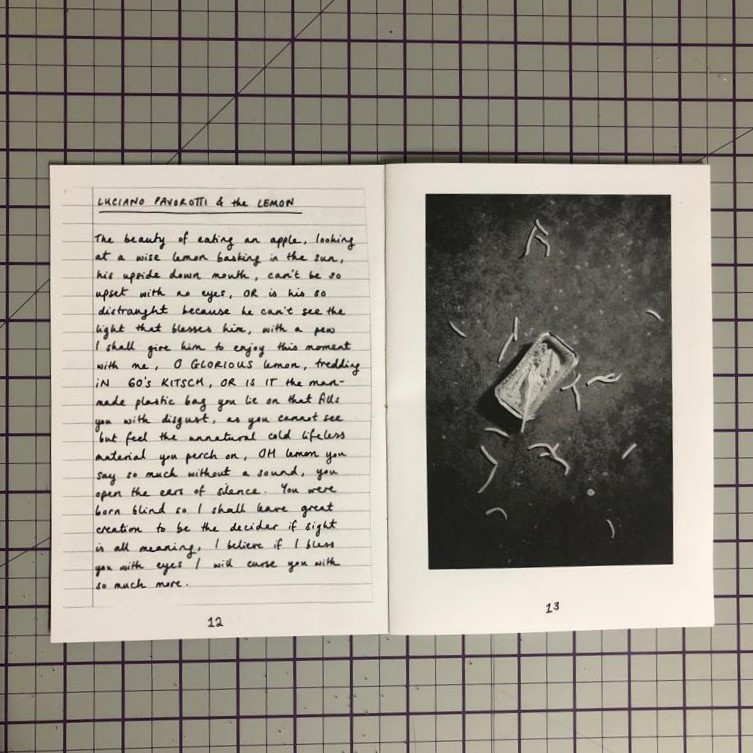 LUCIANO PAVOROTTI & the LEMON
The beauty of eating an apple, looking
at a wise lemon basking in the sun,
his upside down mouth, can't be so
upset with no eyes, OR is his so
distraught because he can't see the
light that blesses him, with a pen
I shall give him to enjoy this moment
with me, O GLORIOUS lemon, tredding
IN 60's KITSCH, OR IS IT the man-
made plastic bag you lie on that fills
you with disgust, as you cannot see
but feel the unnatural cold lifeless
material you perch on, OH lemon you
say so much without a sound, you
open the ears of silence. You were
born blind so I shall leave great
creation to be the decider if sight
is all meaning, I believe if I bless
you with eyes I will curse you with
so much more.
12
13